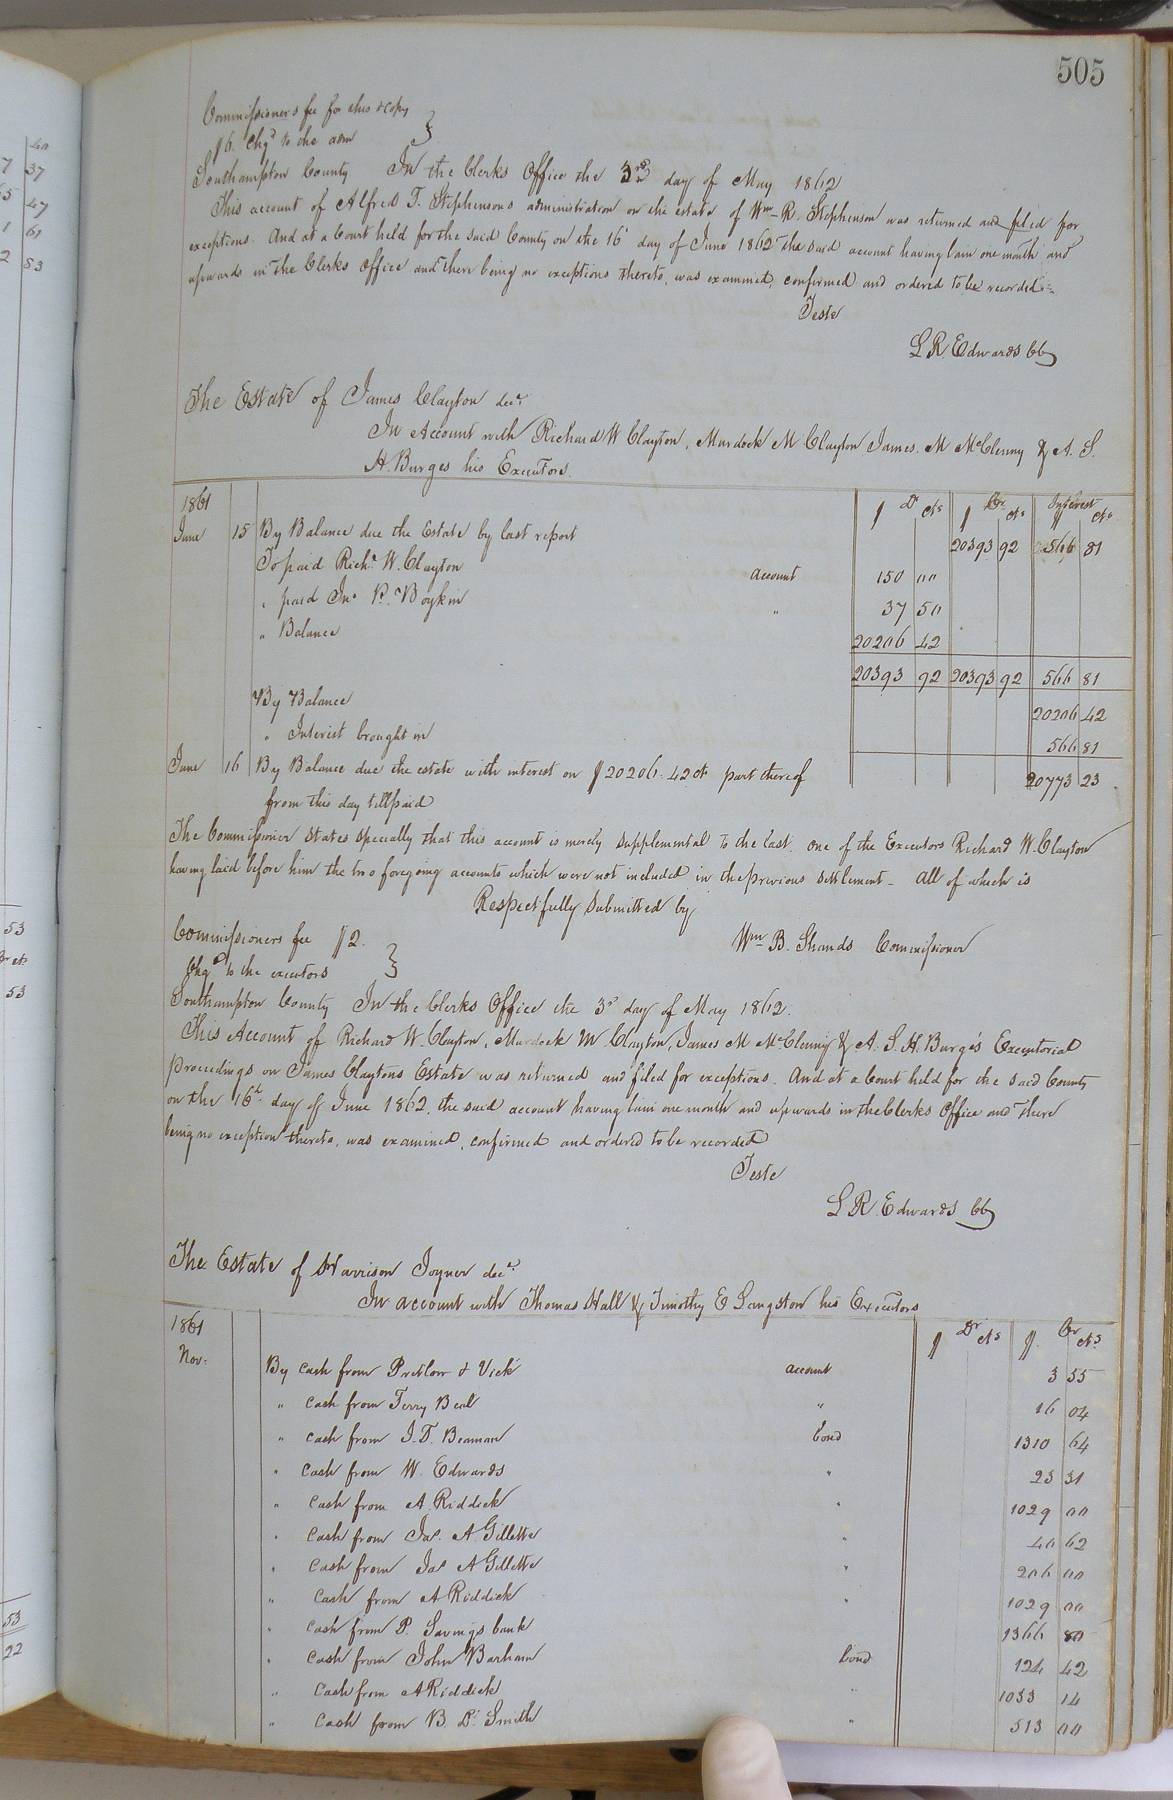 505
Commissioners fee for this & copy
$6. Chgd to the adm
Southampton County In the Clerks Office the 3rd day of May 1862
This account of Alfred T. Stephensons administration on the estate of Wm R. Stephenson was returned and filed for
exceptions. And at a Court held for the said County on the 16th day of June 1862 the said account having lain one month and
upwards in the Clerks Office and there being no exceptions thereto, was examined, confirmed and ordered to be recorded
Teste
L R. Edwards CC
The Estate of James Clayton decd
In Account with Richard W Clayton, Murdock M Clayton James. M McClenny & A. S.
H. Burges his Executors.
1861 $ Dr cts $ Cr cts Interest $ cts
June 15 By Balance due the Estate by last report 20393 92 566 81
To paid Richd W. Clayton account 150 00
" paid Jno R. Boykin " 37 50
" Balance 20206 42
20393 92 20393 92 566 81
By Balance 20206 42
" Interest brought in 566 81
June 16 By Balance due the estate with interest on $20206.42 cts part thereof 20773 23
from this day till paid
The Commissioner states specially that this account is merely supplemental to the last. one of the Executors Richard W. Clayton
having laid before him the two foregoing accounts which were not included in the previous settlement - all of which is
Respectfully Submitted by
Commissioners fee $2. Wm B. Shands Commissioner
Chgd to the executors
Southampton County In the Clerks Office the 3d day of May 1862.
This Account of Richard W. Clayton, Murdock M Clayton, James M McClenny & A. S. H. Burges Executorial
proceedings on James Claytons Estate was returned and filed for exceptions. And at a Court held for the said County
on the 16th day of June 1862, the said account having lain one month and upwards in the Clerks Office and there
being no exception thereto, was examined, confirmed and ordered to be recorded
Teste
L R. Edwards CC
The Estate of Harrison Joyner decd
In account with Thomas Hall & Timothy E Langston his Executors
1861 $ Dr cts $ Cr cts
Nov. By cash from Pretlow & Vick account 3 55
" cash from Terry Beal " 16 04
" cash from J. D. Beaman bond 1310 64
" cash from W. Edwards " 23 31
" cash from A. Riddick " 1029 00
" cash from Jas. A Gillette " 40 62
" cash from Jas A Gillette " 206 00
" cash from A Riddick " 1029 00
" cash from P. Savings bank 1366 80
" cash from John Barham bond 124 42
" cash from A Riddick " 1033 14
" cash from B. D. Smith " 513 00